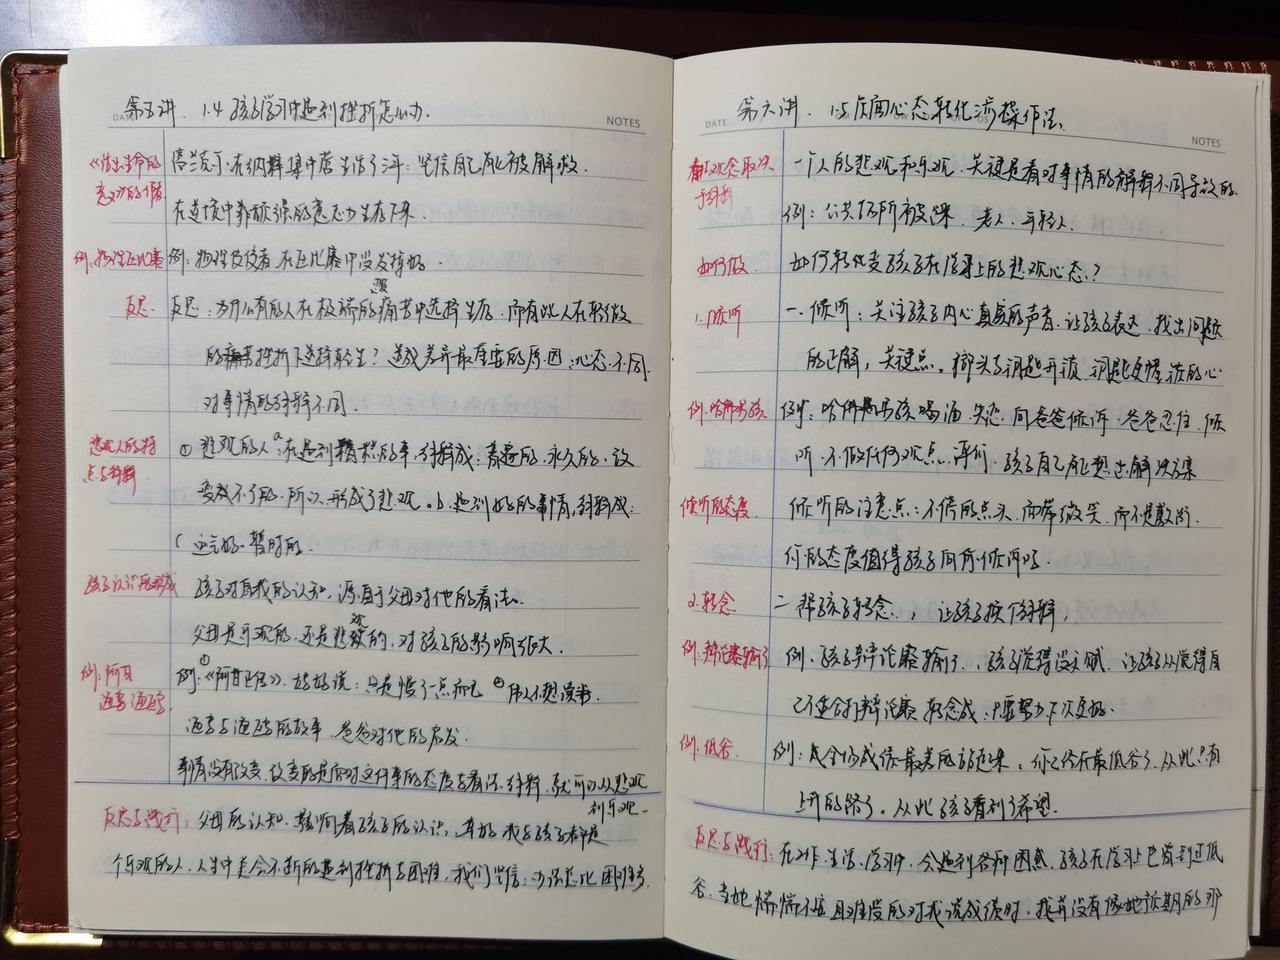 第五讲. 1.4 孩子学习中遇到挫折怎么办.
DATE
NOTES
《活出生命的
意义》
弗兰克尔,在纳粹集中营生活了三年:坚信自己能被解救.
在逆境中靠顽强的意志力生存下来.
例:物理 比赛
例:物理 者.在 比赛中没发挥好.
反思.
反思:为什么有的人在极端的痛苦中选择生存,而有些人在轻微
的挫折下选择轻生?造成差异最重要的原因:心态不同.
对事情的解释不同.
悲观人的特
点与解释
① 悲观的人:a.在遇到糟糕的事,解释成:普遍的.永久的.改
变不了的.所以形成了悲观.b.遇到好的事情,解释成:
( 运气好.暂时的.
孩子认识的形成
孩子对自我的认知,源自于父母对他的看法.
父母是乐观的,还是悲观的,对孩子的影响很大.
例:阿甘
例:①《阿甘正传》.妈妈说:只是慢了一点而已 ② 不想读书.
的故事.爸爸对他的启发.
事情没有改变,改变的是面对这件事的态度与看法.解释,就可以从悲观
到乐观.
反思与践行:
父母的认知,影响着孩子的认识,幸好我与孩子都是
个乐观的人,人生中美会不断的遇到挫折与困难,我们坚信:办法总比困难多.
第六讲. 1.5 负面心态转化法操作法.
DATE
NOTES
取决
于解释
一个人的悲观和乐观,关键是看对事情的解释不同导致的.
例:公共场所被踩.老人.年轻人.
如何做
如何转化变孩子在学习上的悲观心态?
1.倾听
一.倾听:关注孩子内心真实的声音,让孩子表达,找出问题
的正解,关键点.榔头与钥匙开锁,钥匙更懂锁的心
例.哈佛男孩
例:哈佛男孩喝酒.失恋.向爸爸倾诉,爸爸忍住,倾
听.不做任何观点.评价.孩子自己能想出解决方案
倾听的态度
倾听的注意点:不停的点头,面带微笑,而不是敷衍.
你的态度值得孩子向你倾诉吗.
2.转念
二.帮孩子转念,让孩子换个解释,
例:辩论赛输了
例.孩子辩论赛输了.孩子觉得没天赋,让孩子从觉得自
己不适合打辩论赛 转念成:只要努力下次更好.
例:低谷.
例:我全场成绩最差的站起来.你已经在最低谷了,从此只有
上升的路了,从此孩子看到了希望.
反思与践行:
在工作.生活.学习中.会遇到各种困惑,孩子在学习上也曾到过低
谷.当他惴惴不安且难受的对我说成绩时,我并没有像他预期的那